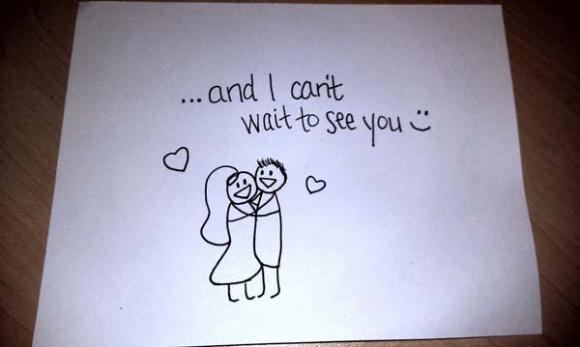 ...and I can't
wait to see you :)